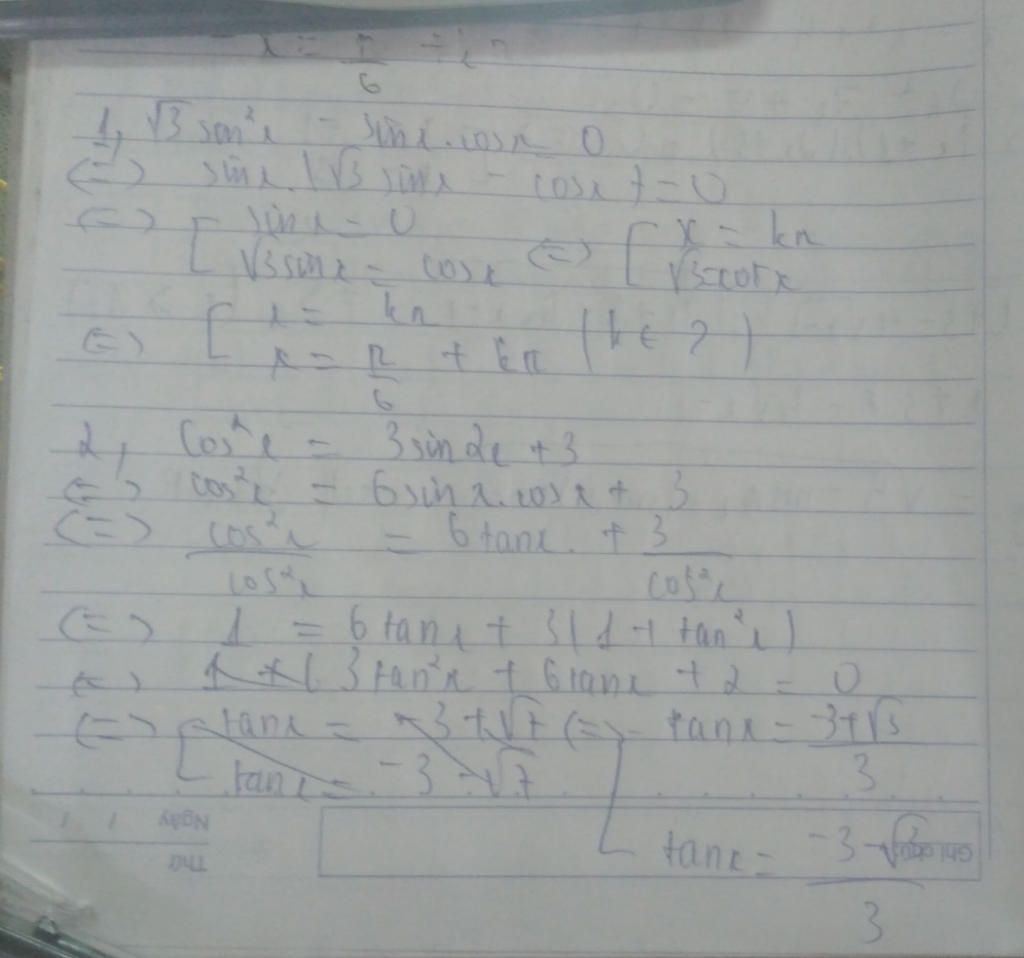 x = π/6 + k
1, √3 sin²x - sinx.cosx = 0
(=) sinx.(√3 sinx - cosx) = 0
(=) [ sinx = 0 (=) [ x = kπ
√3 sinx = cosx √3 = cotx
(=) [ x = kπ
x = π/6 + kπ (k ∈ Z)
2, Cos²x = 3sin2x + 3
(=) cos²x = 6sinx.cosx + 3
(=) cos²x/cos²x = 6tanx. + 3/cos²x
(=) 1 = 6tanx + 3(1 + tan²x)
(=) 3tan²x + 6tanx + 2 = 0
(=) [ tanx = -3 + √7 (=) [ tanx = -3+√3/3
tanx = -3 - √7
Ngày / /
Thứ
tanx = -3-√3/3